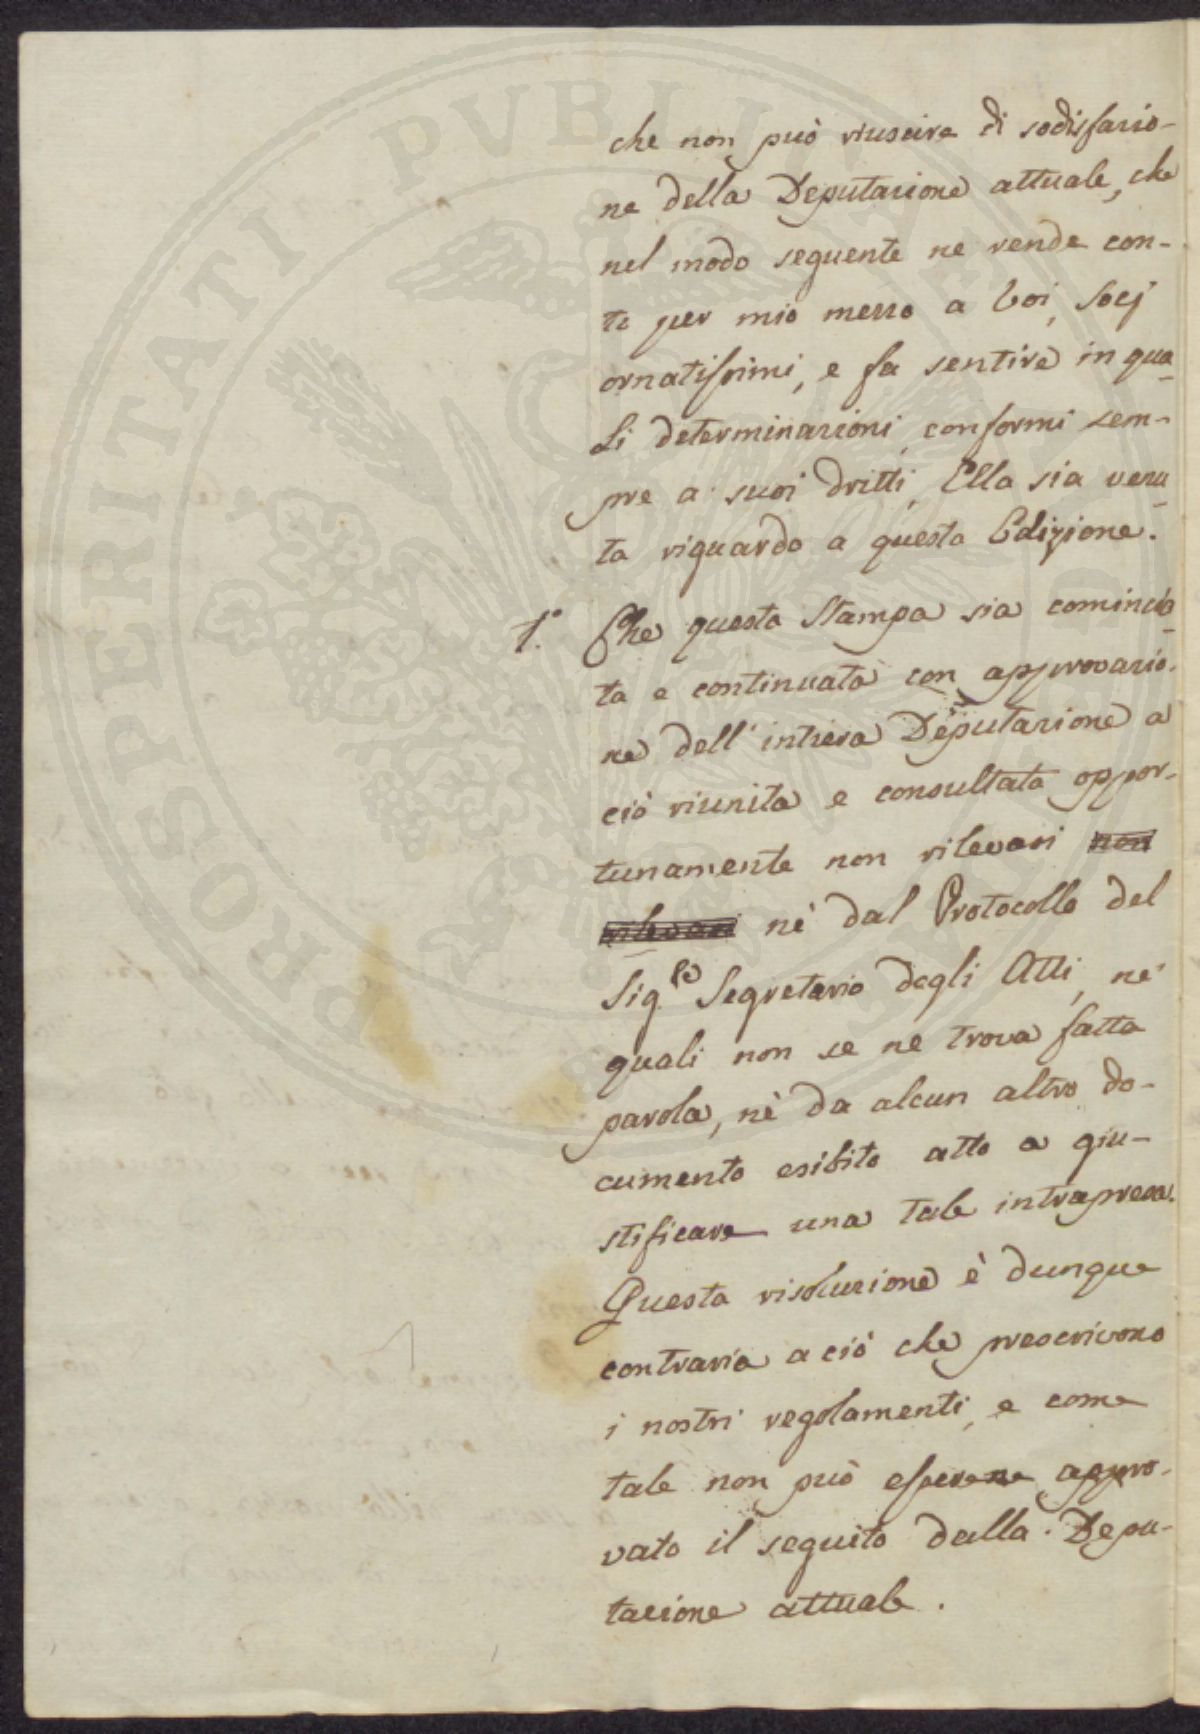 che non può riuscire di sodisfazio-
ne della Deputazione attuale, che
nel modo seguente ne rende con-
to per mio mezzo a Voi, Socj
ornatissimi, e fa sentire in qua-
li determinazioni, conformi sem-
pre a' suoi dritti, Ella sia venu-
ta riguardo a questa Edizione.
1.° Che questa Stampa sia comincia-
ta e continuata con approvazio-
ne dell' intiera Deputazione a
ciò riunita e consultata oppor-
tunamente non rilevasi non
rilevasi nè dal Protocollo del
Sig.re Segretario degli Atti, ne'
quali non se ne trova fatta
parola, nè da alcun altro do-
cumento esibito atto a giu-
stificare una tale intrapresa.
Questa risoluzione è dunque
contraria a ciò che prescrivono
i nostri regolamenti, e come
tale non può esserne appro-
vato il seguito dalla Depu-
tazione attuale.
PROSPERITATI PVBLICAE